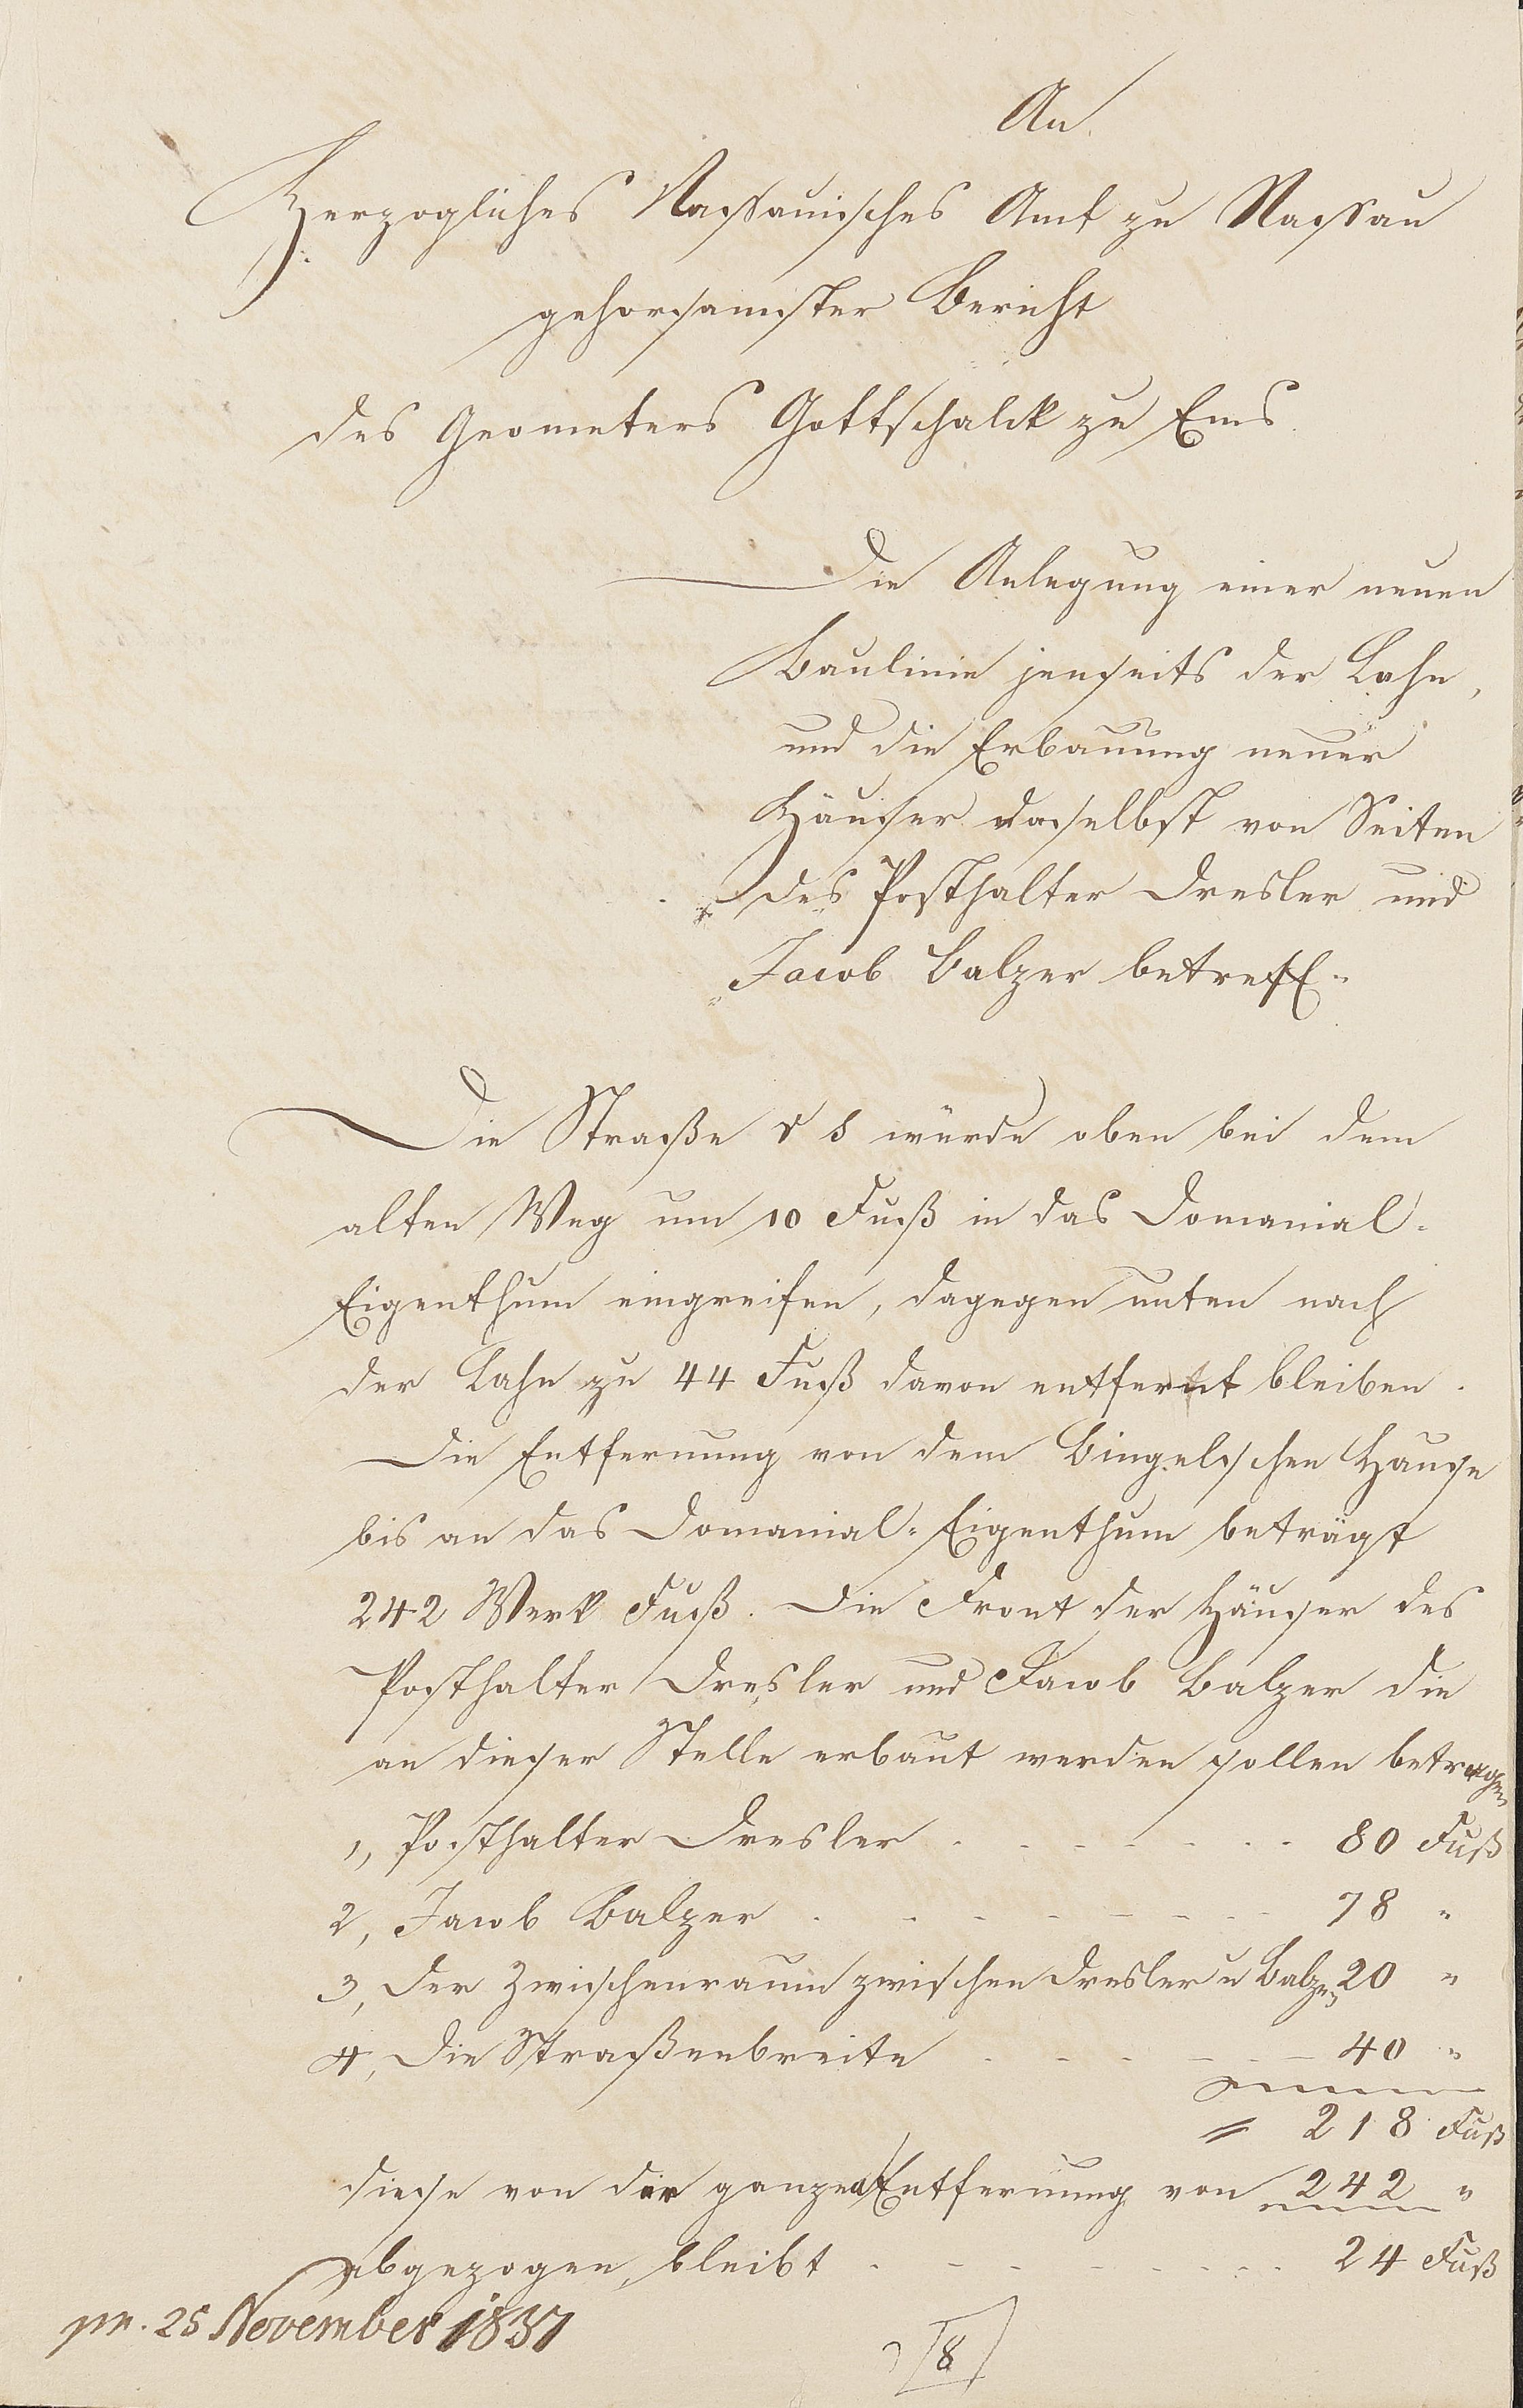 An
Herzogliches Nassauisches Amt zu Nassau
gehorsamster Bericht
des Geometers Gottschalck zu Ems.
Die Anlegung einer neuen
Baulinie jenseits der Lahn,
und die Erbauung neuer
Häuser daselbst von Seiten
des Posthalter Dresler und
Jacob Balzer betreff.
Die Straße würde oben bei dem
alten Weg um 10 Fuß in das Domanial-
Eigenthum eingreifen, dagegen unten nach
der Lahn zu 44 Fuß davon entfernt bleiben.
Die Entfernung von dem Bingelschen Hause
bis an das Domanial-Eigenthum beträgt
242 Werk Fuß. Die Front der Häuser des
Posthalter Dresler und Jacob Balzer die
an dieser Stelle erbaut werden sollen betragen
1, Posthalter Dresler - - - - - - 80 Fuß
2, Jacob Balzer - - - - - - - 78 "
3, Der Zwischenraum zwischen Dresler u Balzer 20 "
4, Die Straßenbreite - - - - - 40 "
= 218 Fuß
diese von der ganzen Entfernung von 242 "
abgezogen, bleibt - - - - - - 24 Fuß
pr. 25 November 1837
8